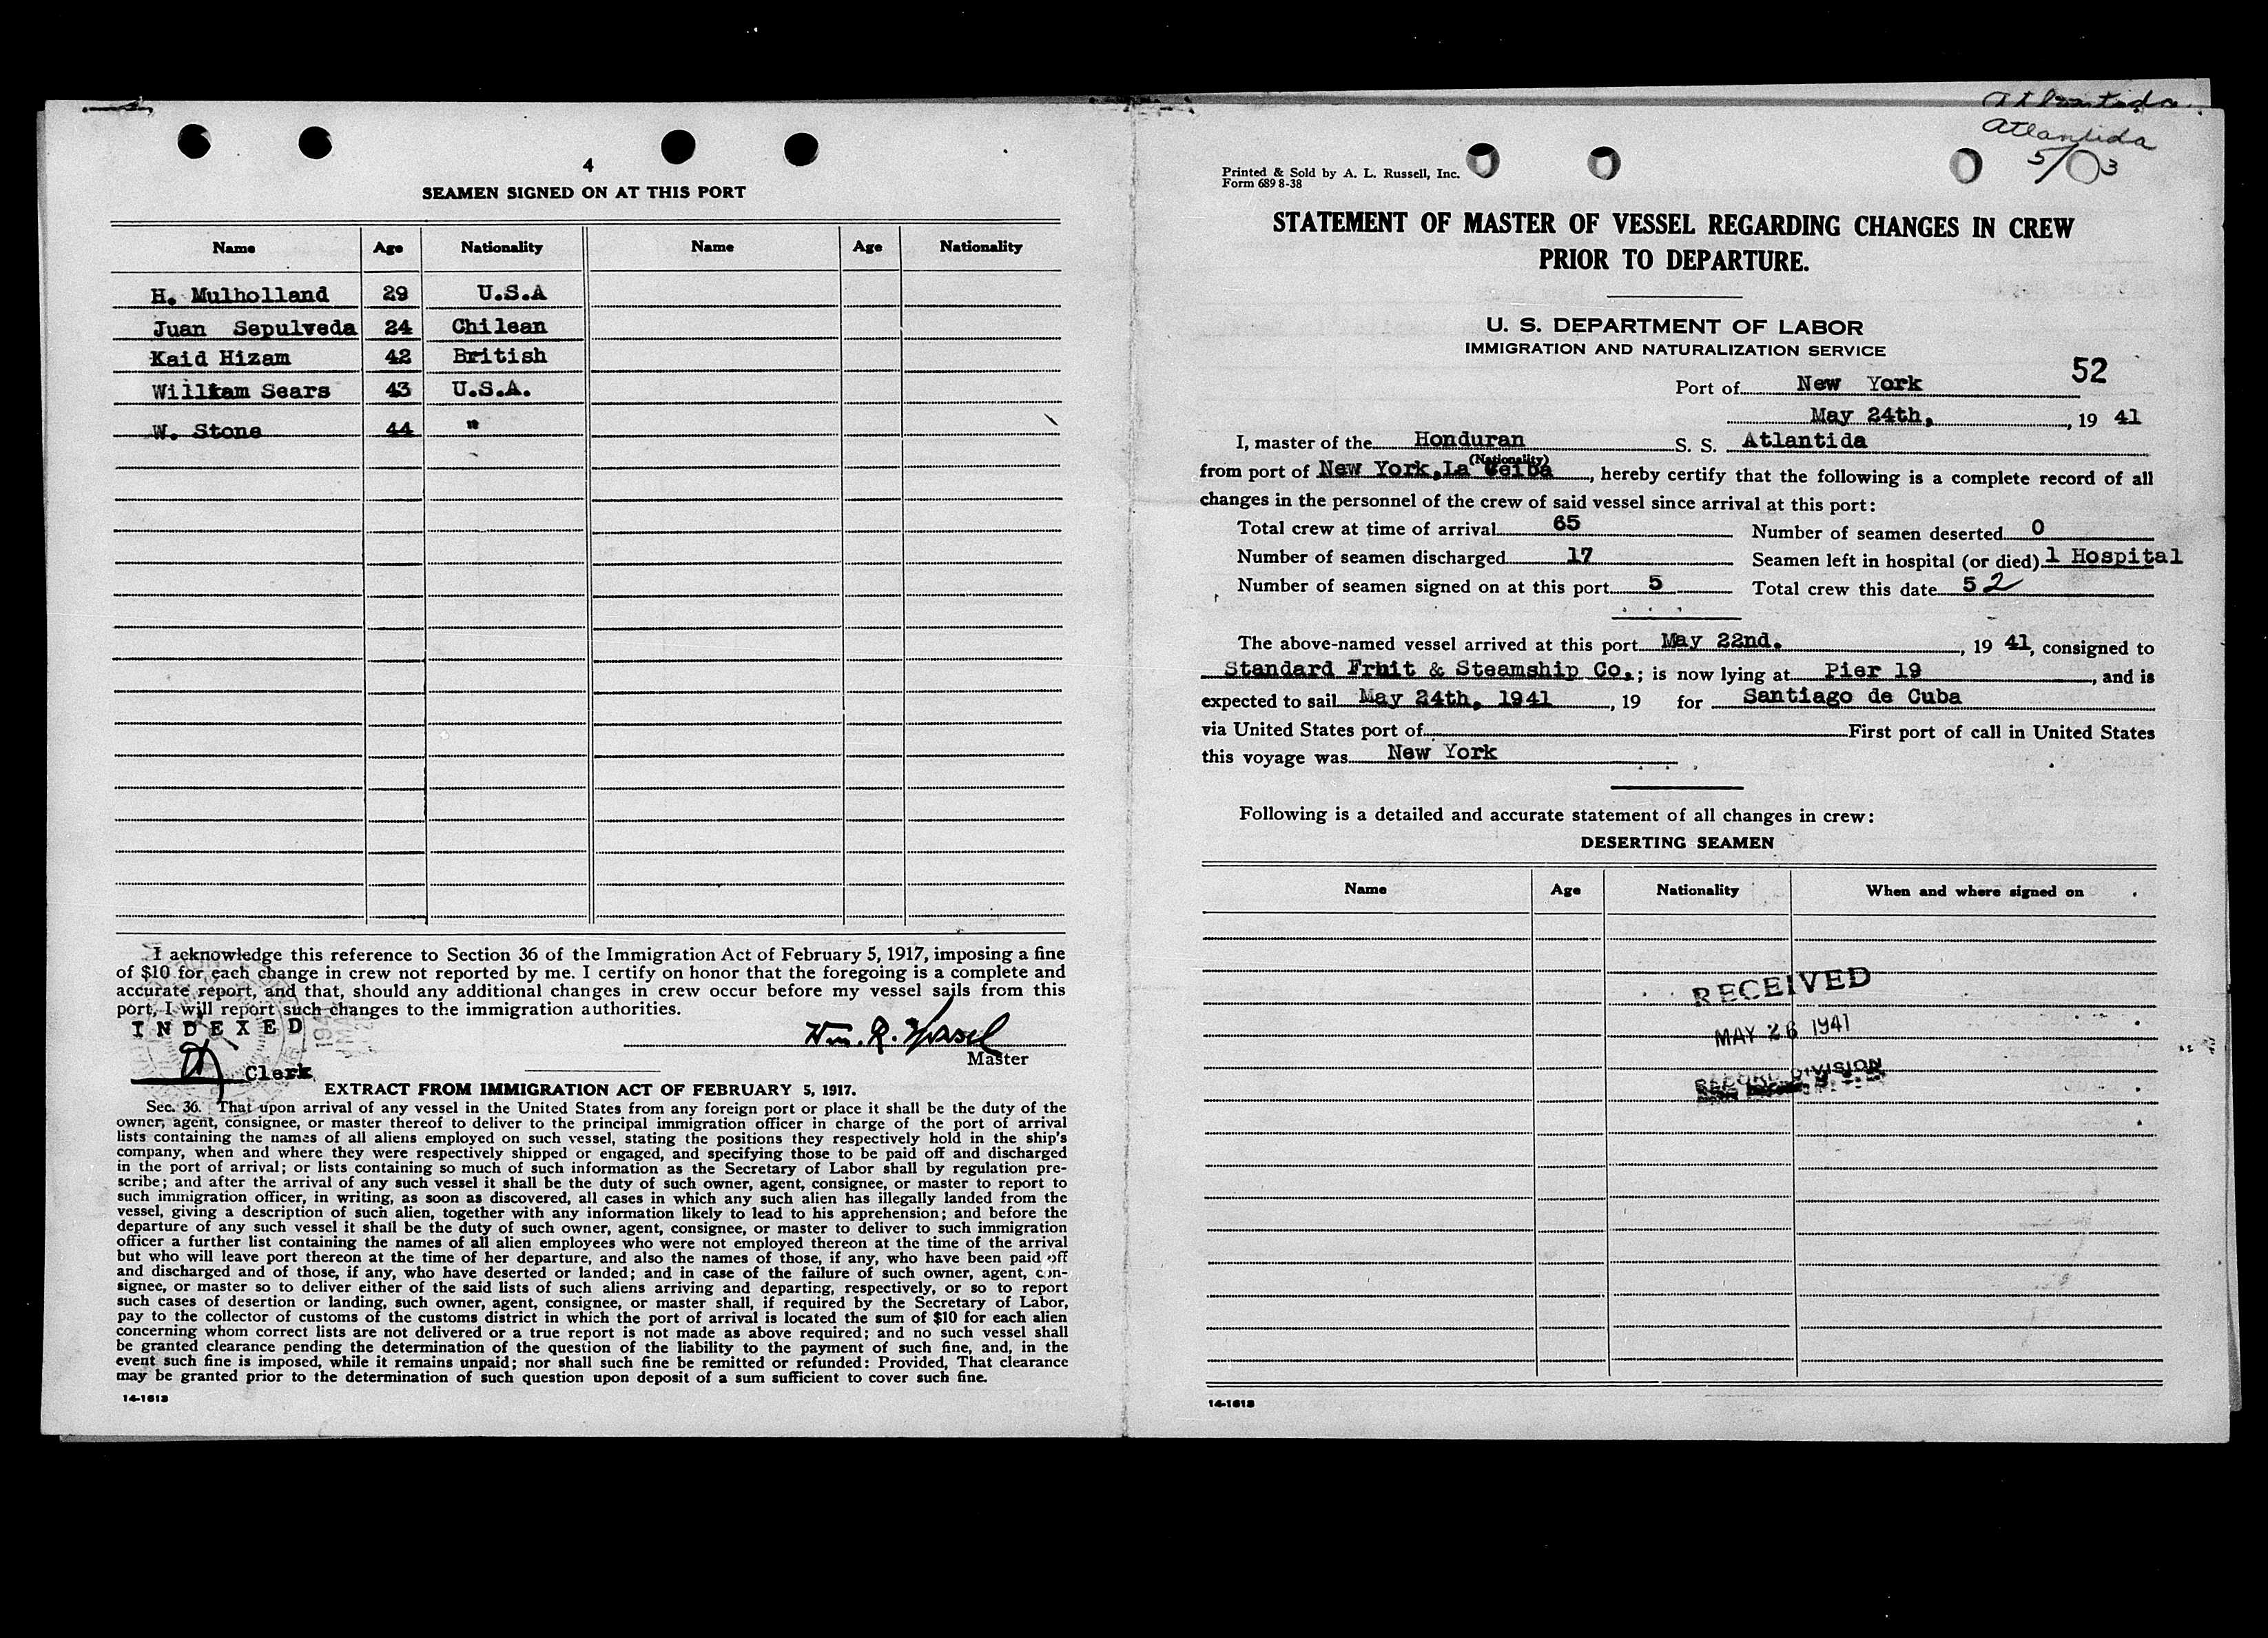 4
SEAMEN SIGNED ON AT THIS PORT
Name Age Nationality Name Age Nationality
H. Mulholland 29 U.S.A
Juan Sepulveda 24 Chilean
Kaid Hizam 42 British
William Sears 43 U.S.A.
W. Stone 44 "
I acknowledge this reference to Section 36 of the Immigration Act of February 5, 1917, imposing a fine
of $10 for each change in crew not reported by me. I certify on honor that the foregoing is a complete and
accurate report, and that, should any additional changes in crew occur before my vessel sails from this
port, I will report such changes to the immigration authorities.
INDEXED
Wm. R.
Master
Clerk
EXTRACT FROM IMMIGRATION ACT OF FEBRUARY 5, 1917.
Sec. 36. That upon arrival of any vessel in the United States from any foreign port or place it shall be the duty of the
owner, agent, consignee, or master thereof to deliver to the principal immigration officer in charge of the port of arrival
lists containing the names of all aliens employed on such vessel, stating the positions they respectively hold in the ship's
company, when and where they were respectively shipped or engaged, and specifying those to be paid off and discharged
in the port of arrival; or lists containing so much of such information as the Secretary of Labor shall by regulation pre-
scribe; and after the arrival of any such vessel it shall be the duty of such owner, agent, consignee, or master to report to
such immigration officer, in writing, as soon as discovered, all cases in which any such alien has illegally landed from the
vessel, giving a description of such alien, together with any information likely to lead to his apprehension; and before the
departure of any such vessel it shall be the duty of such owner, agent, consignee, or master to deliver to such immigration
officer a further list containing the names of all alien employees who were not employed thereon at the time of the arrival
but who will leave port thereon at the time of her departure, and also the names of those, if any, who have been paid off
and discharged and of those, if any, who have deserted or landed; and in case of the failure of such owner, agent, con-
signee, or master so to deliver either of the said lists of such aliens arriving and departing, respectively, or so to report
such cases of desertion or landing, such owner, agent, consignee, or master shall, if required by the Secretary of Labor,
pay to the collector of customs of the customs district in which the port of arrival is located the sum of $10 for each alien
concerning whom correct lists are not delivered or a true report is not made as above required; and no such vessel shall
be granted clearance pending the determination of the question of the liability to the payment of such fine, and, in the
event such fine is imposed, while it remains unpaid; nor shall such fine be remitted or refunded: Provided, That clearance
may be granted prior to the determination of such question upon deposit of a sum sufficient to cover such fine.
14-1613
Atlantida
Atlantida
Printed & Sold by A. L. Russell, Inc.
Form 689 8-38
STATEMENT OF MASTER OF VESSEL REGARDING CHANGES IN CREW
PRIOR TO DEPARTURE.
U. S. DEPARTMENT OF LABOR
IMMIGRATION AND NATURALIZATION SERVICE
52
Port of New York
May 24th, , 19 41
I, master of the Honduran S. S. Atlantida
(Nationality)
from port of New York, La Ceiba , hereby certify that the following is a complete record of all
changes in the personnel of the crew of said vessel since arrival at this port:
Total crew at time of arrival 65 Number of seamen deserted 0
Number of seamen discharged 17 Seamen left in hospital (or died) 1 Hospital
Number of seamen signed on at this port 5 Total crew this date 52
The above-named vessel arrived at this port May 22nd. , 19 41, consigned to
Standard Fruit & Steamship Co.; is now lying at Pier 19 , and is
expected to sail May 24th, 1941 , 19 for Santiago de Cuba
via United States port of First port of call in United States
this voyage was New York
Following is a detailed and accurate statement of all changes in crew:
DESERTING SEAMEN
Name Age Nationality When and where signed on
RECEIVED
MAY 26 1941
RECORD DIVISION
14-1613